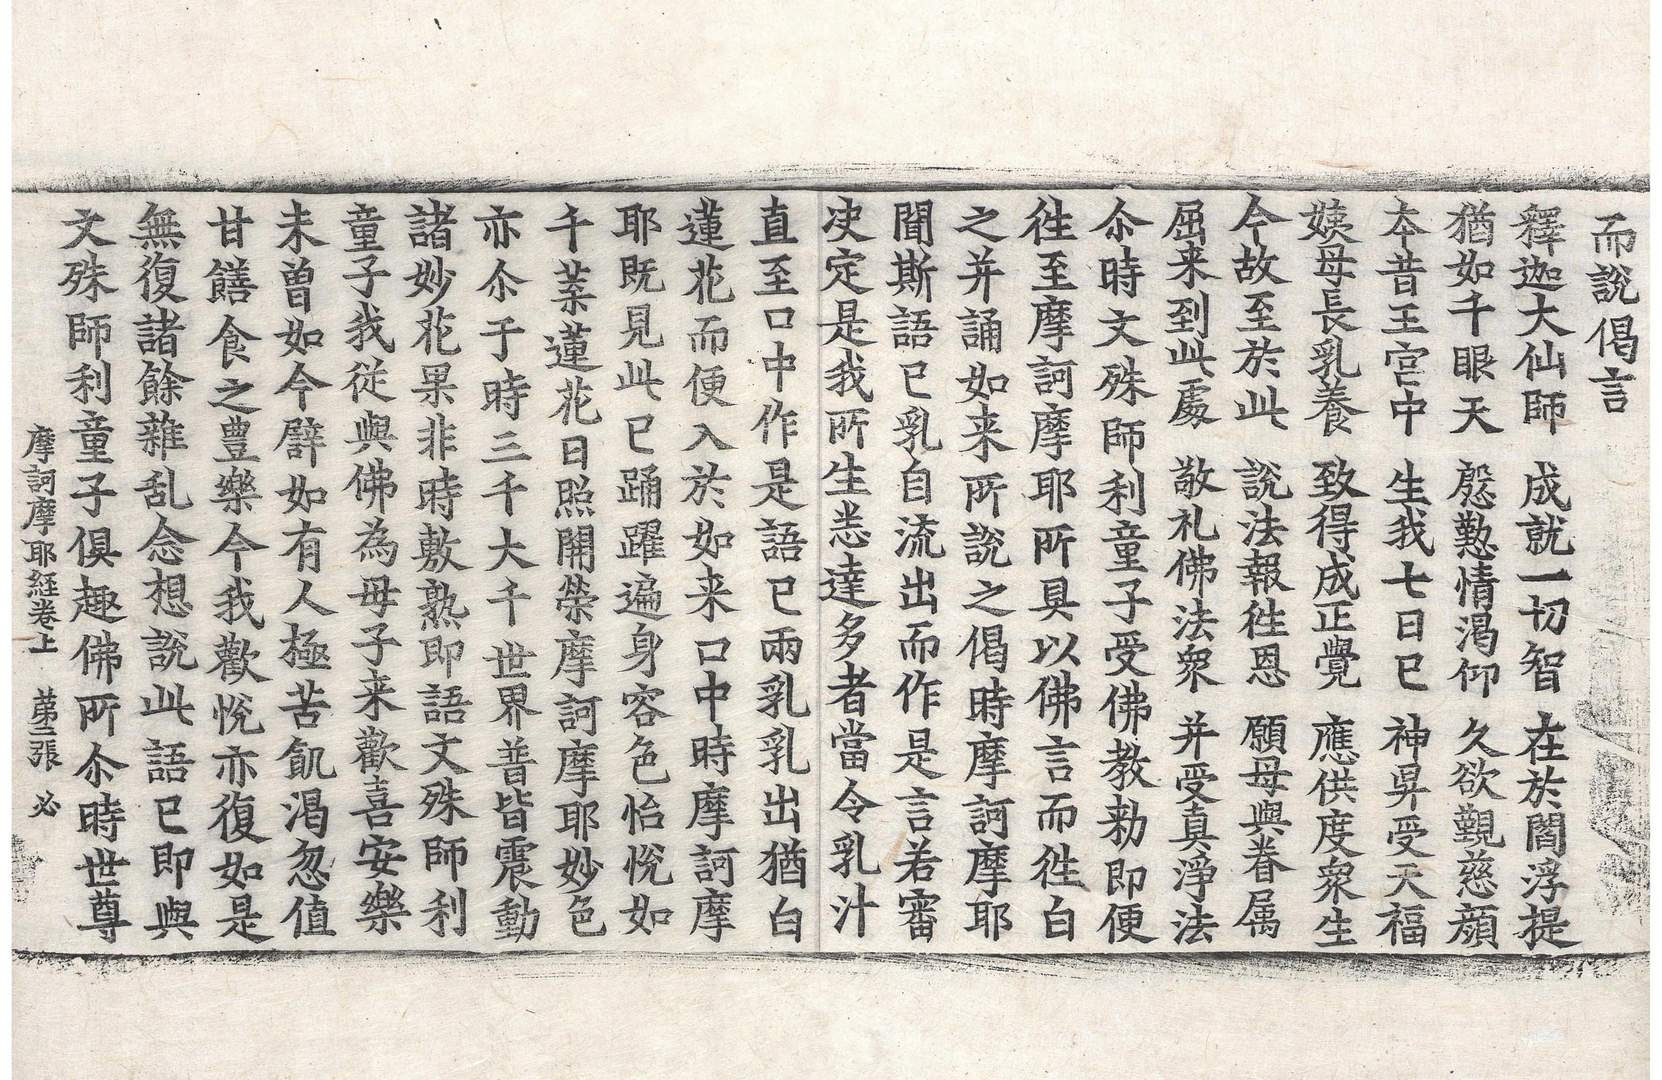 而說偈言
釋迦大仙師 成就一切智 在於閻浮提
猶如千眼天 慇懃情渴仰 久欲覲慈顔
本昔王宮中 生我七日已 神昇受天福
姨母長乳養 致得成正覺 應供度衆生
今故至於此 說法報徃恩 願母與眷属
屈来到此處 敬礼佛法衆 并受真淨法
尒時文殊師利童子受佛教勑即便
徃至摩訶摩耶所具以佛言而徃白
之并誦如来所說之偈時摩訶摩耶
聞斯語已乳自流出而作是言若審
决定是我所生悉達多者當令乳汁
直至口中作是語已兩乳乳出猶白
蓮花而便入於如来口中時摩訶摩
耶既見此已踊躍遍身容色怡悅如
千葉蓮花日照開榮摩訶摩耶妙色
亦尒于時三千大千世界普皆震動
諸妙花果非時敷熟即語文殊師利
童子我從與佛為母子来歡喜安樂
未曾如今譬如有人極苦飢渴忽值
甘饍食之豊樂今我歡悅亦復如是
無復諸餘雜乱念想說此語已即與
文殊師利童子俱趣佛所尒時世尊
摩訶摩耶経卷上 苐三張 必